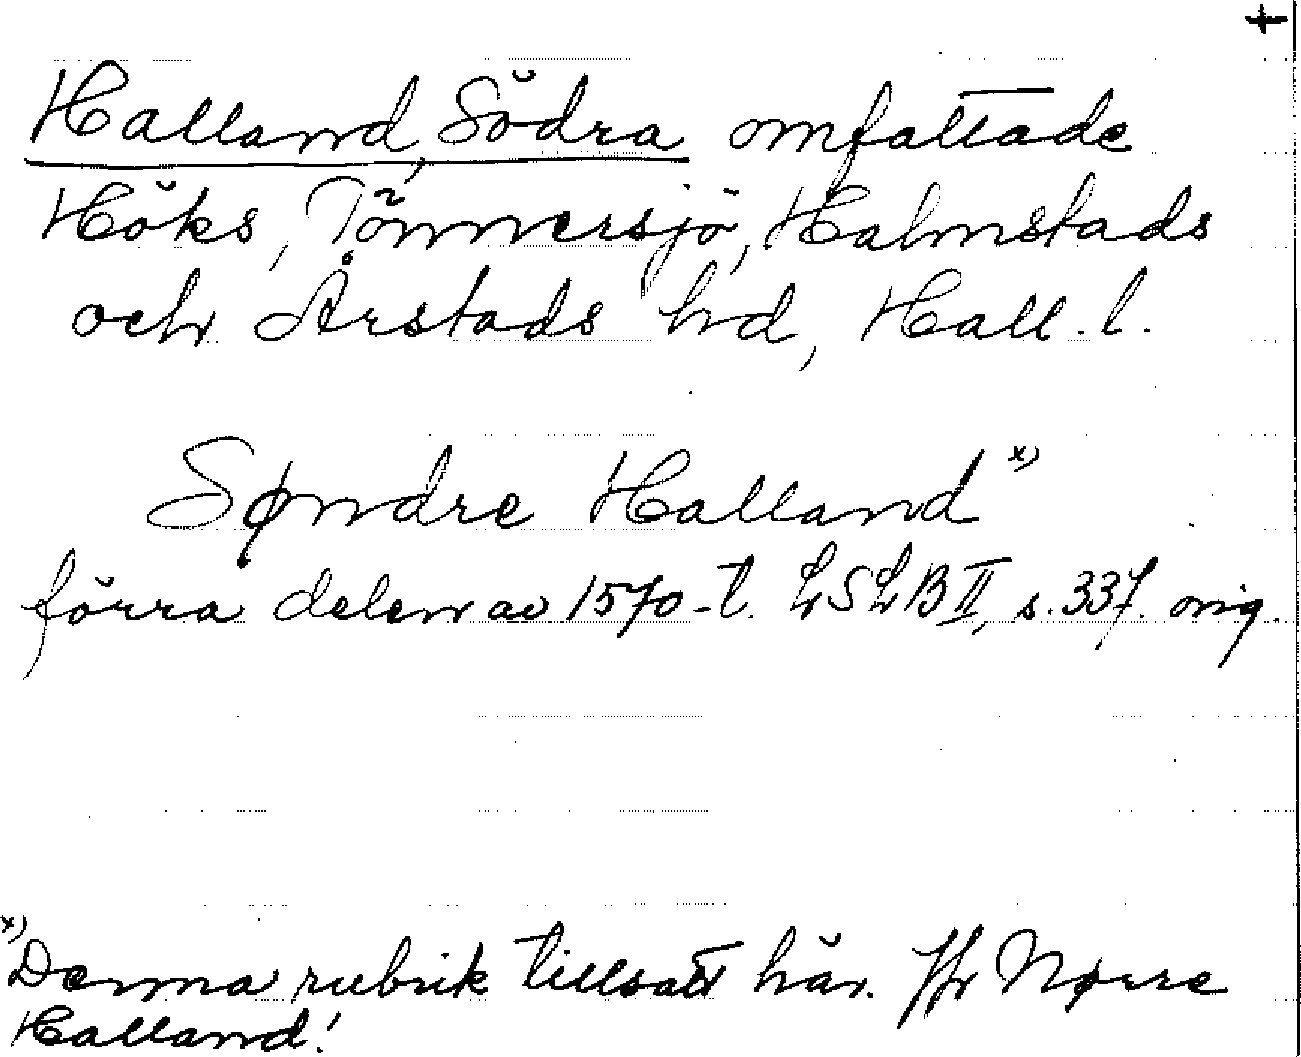 †
Halland, Södra omfattade
Höks, Tönnersjö, Halmstads
och Årstads hd, Hall. l.
Søndre Halland x)
förra delen av 1570-t. LSLB II, s. 337. orig.
x) Denna rubrik tillsatt här. Jfr Nørre
Halland!